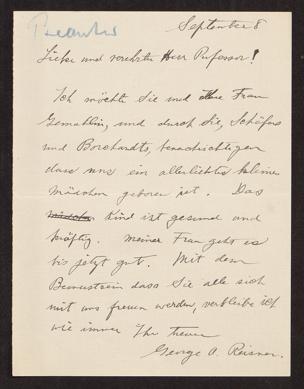 Beantw
September 8
Liebe und verehrter Herr Professor!
Ich möchte Sie und Ihre Frau
Gemahlin, und durch Sie, Schäfers
und Borchardts, benachrichtigen
dass uns ein allerliebstes kleines
Mädchen geboren ist. Das
Kind ist gesund und
kräftig. Meiner Frau geht es
bis jetzt gut. Mit dem
Bewusstsein dass Sie alle sich
mit uns freuen werden, verbleibe ich
wie immer Ihr treuer
George A. Reisner.